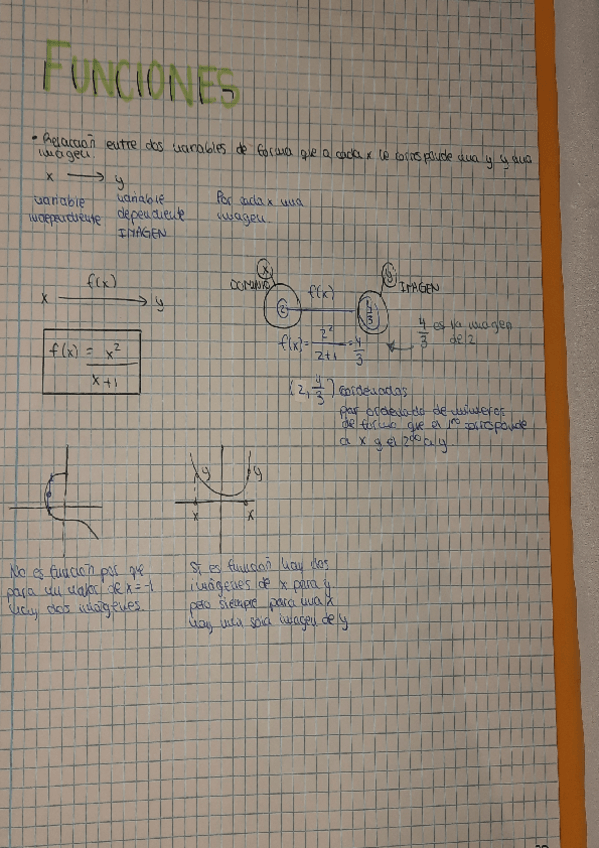 FUNCIONES
• Relación entre dos variables de forma que a cada x le corresponde una y y una
imagen.
x → y
variable variable Por cada x una
independiente dependiente imagen.
IMAGEN
f(x)
x → y
x y
DOMINIO f(x) IMAGEN
2 4/3
f(x) = 2²/2+1 = 4/3
4/3 es la imagen
de 2
f(x) = x²/x+1
(2, 4/3) Cordenadas
par ordenado de números
de forma que el 1º corresponde
a x y el 2º a y.
y y
x x
No es función por que
para un valor de x = -1
hay dos imágenes.
Si es función hay dos
imágenes de x para y
pero siempre para una x
hay una sola imagen de y